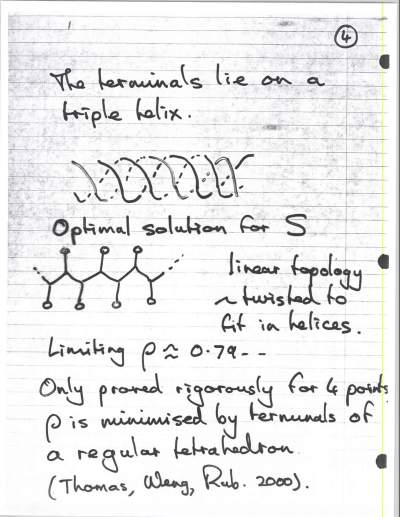 4
The terminals lie on a
triple helix.
Optimal solution for S
linear topology
~ twisted to
fit in helices.
Limiting ρ ≈ 0.79--
Only proved rigorously for 4 points
ρ is minimised by terminals of
a regular tetrahedron
(Thomas, Weng, Rub. 2000).